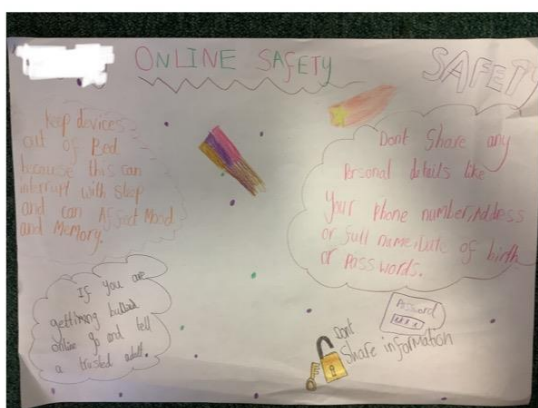 ONLINE SAFETY
SAFETY
Keep devices
out of Bed
because this can
interrupt with sleep
and can Affect Mood
and Memory.
Dont Share any
Personal details like
Your Phone number, Address
or full name, date of birth
or Passwords.
If you are
gettinng bullied
online go and tell
a trusted adult.
Password
Dont
Share information